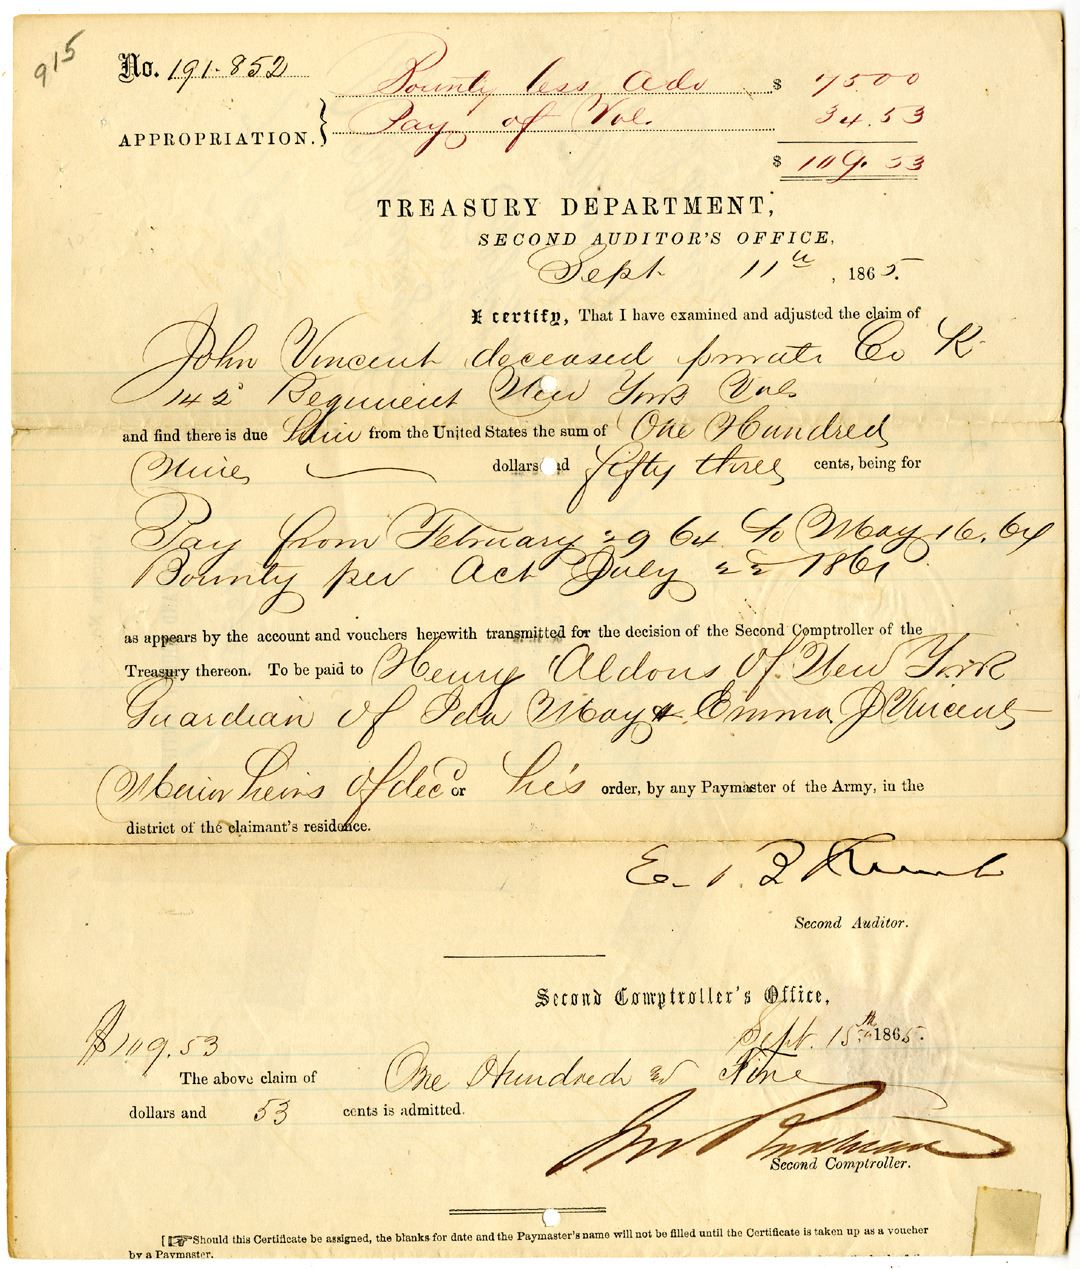 915
No. 191.852
Bounty less Adv $ 7500
APPROPRIATION. } Pay of Vol. 34.53
$ 109.53
TREASURY DEPARTMENT,
SECOND AUDITOR'S OFFICE,
Sept 11th, 1865.
I certify, That I have examined and adjusted the claim of
John Vincent deceased private Co K
142d Regiment New York Vols
and find there is due from the United States the sum of One Hundred
Nine dollars and fifty three cents, being for
Pay from February 29 64 to May 16. 64
Bounty per Act July 22 1861
as appears by the account and vouchers herewith transmitted for the decision of the Second Comptroller of the
Treasury thereon. To be paid to Henry Aldous of New York
Guardian of Ida May & Emma J Vincent
Minor heirs of decd or his order, by any Paymaster of the Army, in the
district of the claimant's residence.
E.
Second Auditor.
Second Comptroller's Office,
Sept. 15th 1865.
$109.53
The above claim of One Hundred & Nine
dollars and 53 cents is admitted.
Second Comptroller.
[☞Should this Certificate be assigned, the blanks for date and the Paymaster's name will not be filled until the Certificate is taken up as a voucher
by a Paymaster.